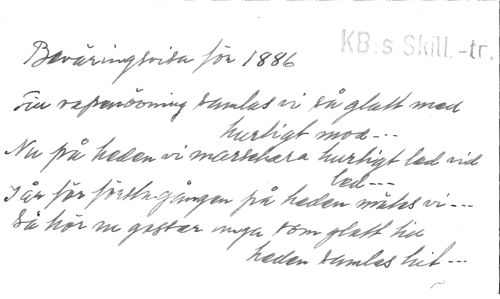 KB:s Skill.-tr.
Beväringsvisa för 1886
Till vapenövning samlas vi så glatt med
hurtigt mod---
Nu på heden vi marschera hurtigt led vid
led---
I år för första gången på heden mötas vi---
Så hör ni gossar unga som glatt till
heden samlas hit---